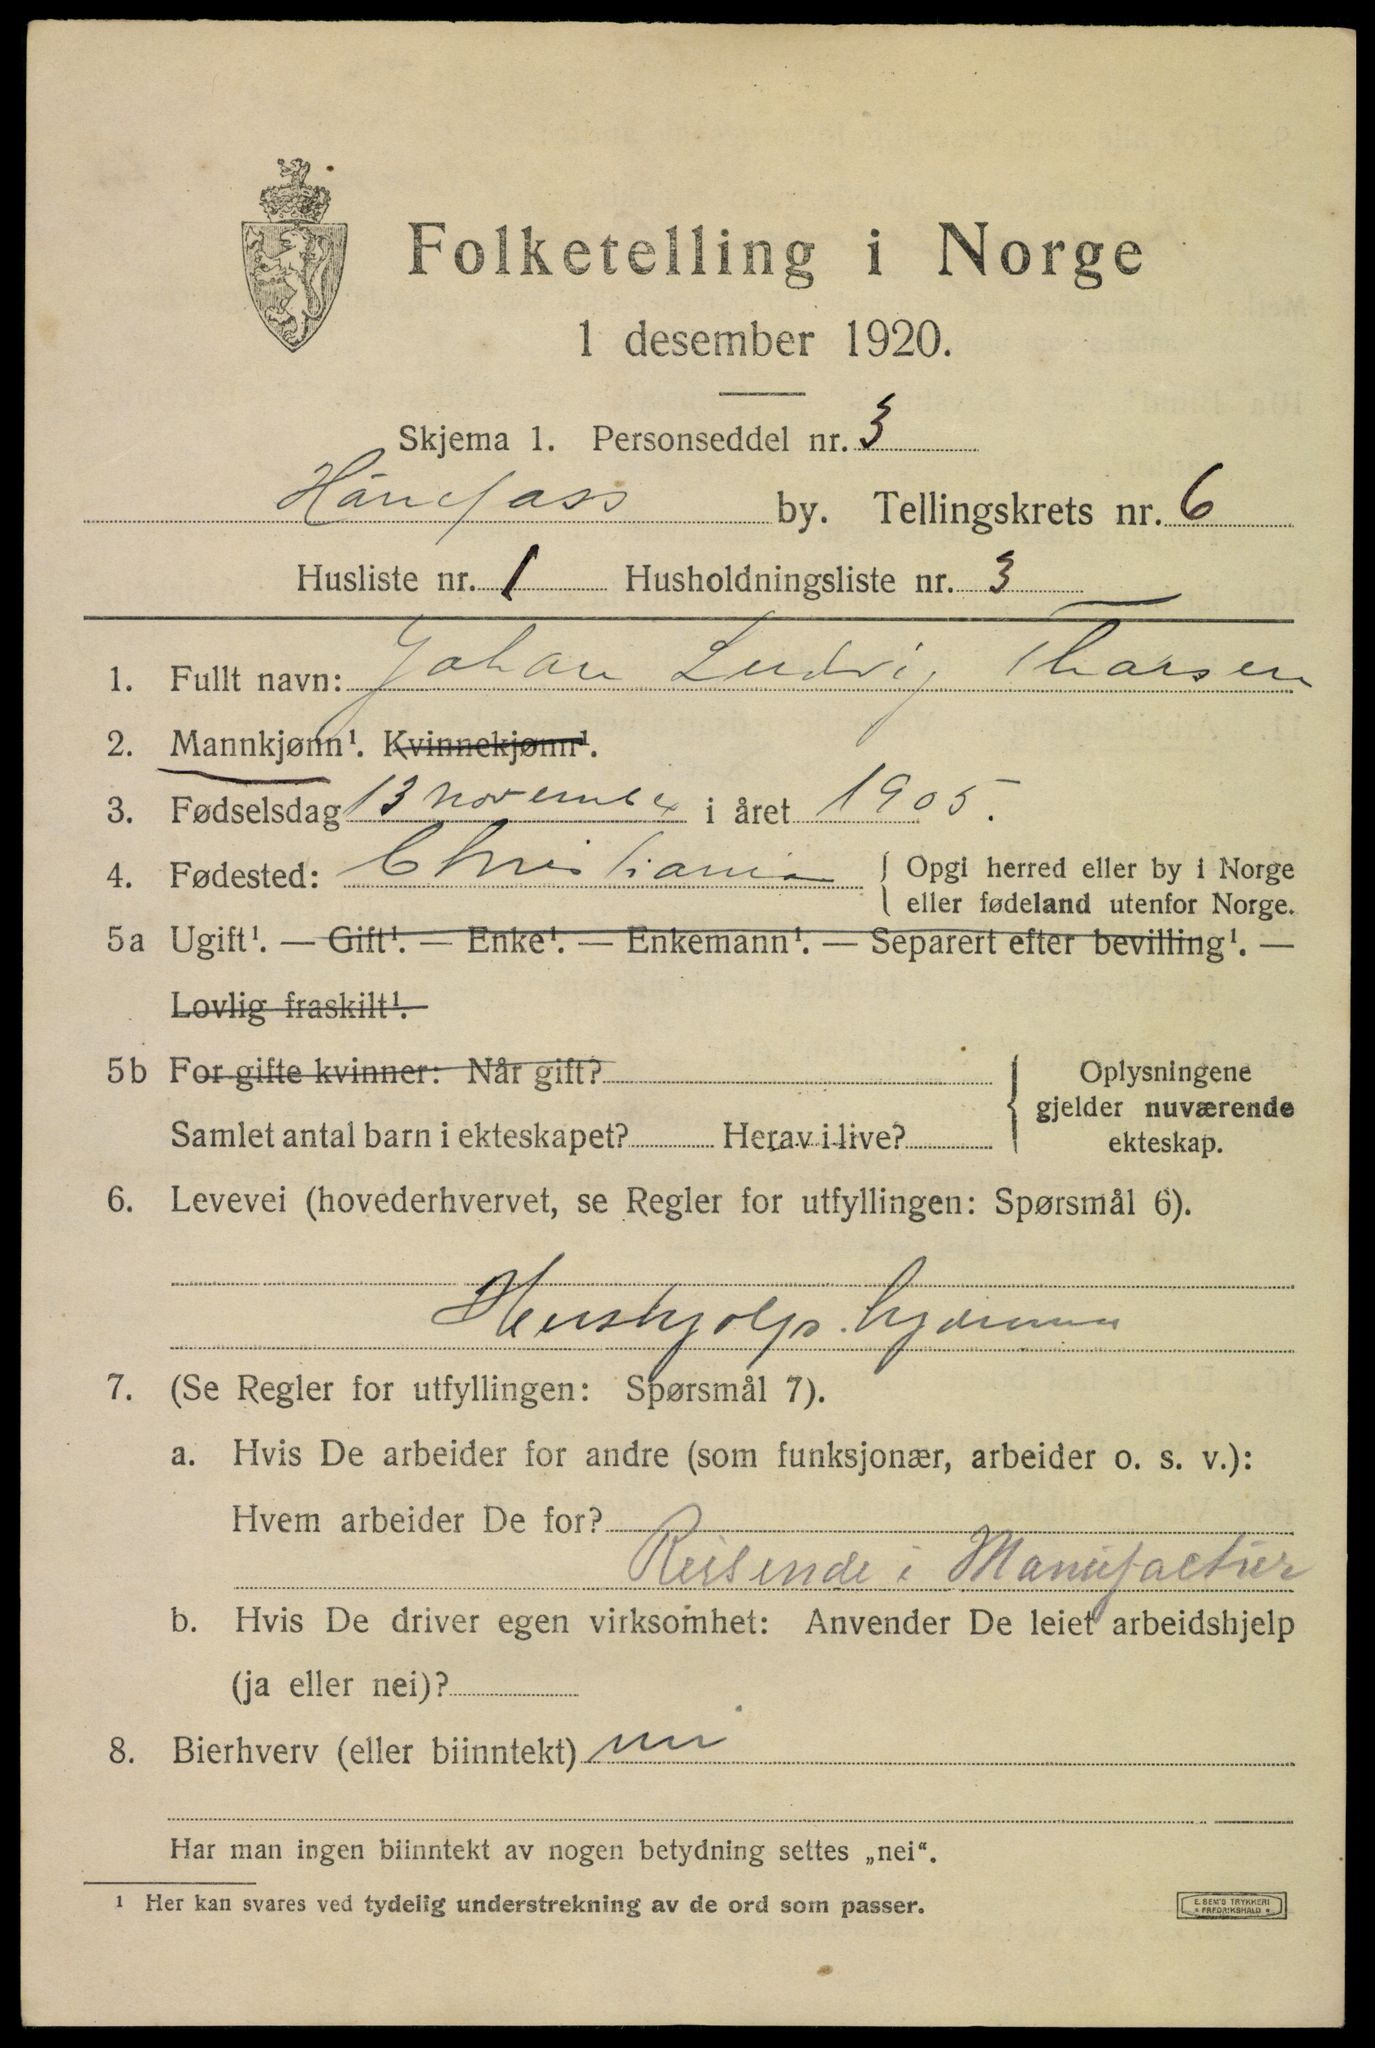 Folketelling i Norge
1 desember 1920.
Skjema 1. Personseddel nr. 3
Hønefoss by. Tellingskrets nr. 6
Husliste nr. 1 Husholdningsliste nr. 3
1. Fullt navn: Johan Ludvig Thorsen
2. Mannkjønn¹. Kvinnekjønn¹.
3. Fødselsdag 13 november i året 1905.
4. Fødested: Christiania { Opgi herred eller by i Norge
eller fødeland utenfor Norge.
5a Ugift¹. — Gift¹. — Enke¹. — Enkemann¹. — Separert efter bevilling¹. —
Lovlig fraskilt¹.
5b For gifte kvinner: Når gift? { Oplysningene
gjelder nuværende
Samlet antal barn i ekteskapet? Herav i live? ekteskap.
6. Levevei (hovederhvervet, se Regler for utfyllingen: Spørsmål 6).
hjemme
7. (Se Regler for utfyllingen: Spørsmål 7).
a. Hvis De arbeider for andre (som funksjonær, arbeider o. s. v.):
Hvem arbeider De for?
Reisende i Manufactur
b. Hvis De driver egen virksomhet: Anvender De leiet arbeidshjelp
(ja eller nei)?
8. Bierhverv (eller biinntekt) nei
Har man ingen biinntekt av nogen betydning settes „nei“.
¹ Her kan svares ved tydelig understrekning av de ord som passer.
E. SEM'S TRYKKERI
FREDRIKSHALD